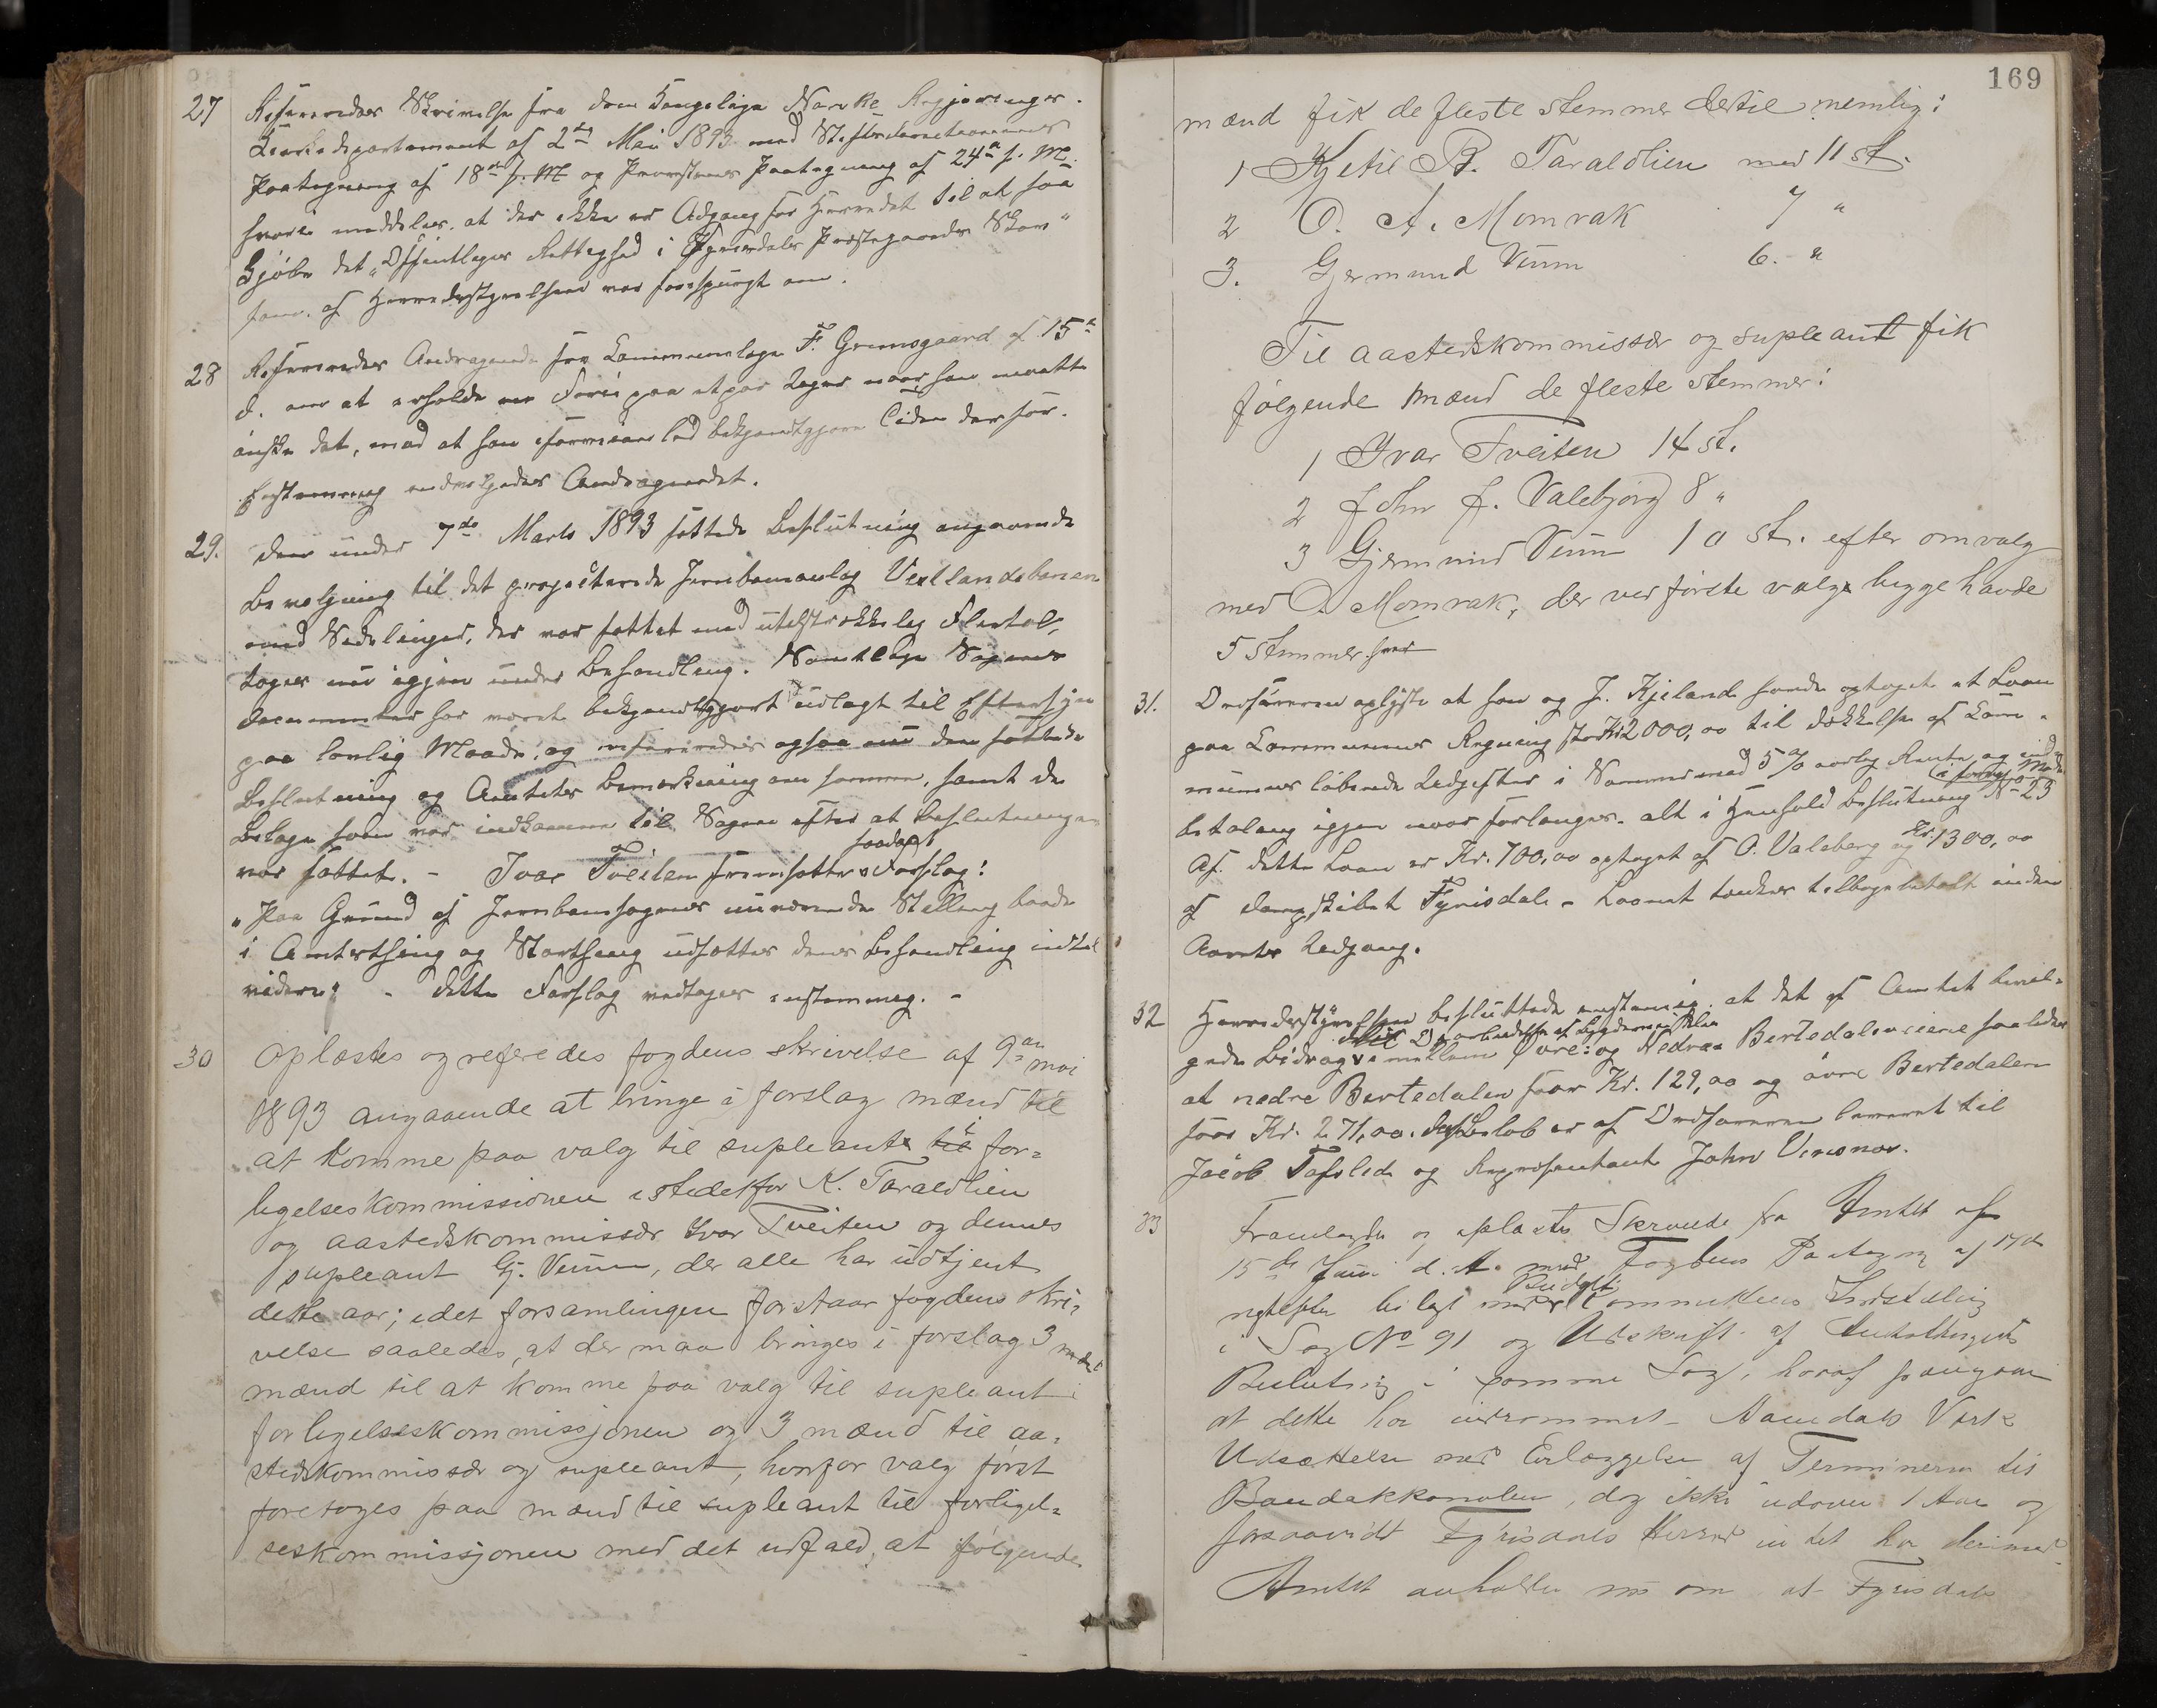 27 Refereredes Skrivelse fra den Kongelige Norske Regjerings
Kirkedepartement af 2den Mai 1893 med Stiftsdirectionens
Paategning af 18de s. M. og Provstens Paategning af 24de s. M.
hvori meddeles, at der ikke er Adgang for Herredet til at faa
kjöbe det "Offentliges Rettighed i Præstegaardens Skov"
som af Herredsstyrelsen var forespurgt om.
28 Refereredes Andragende fra Kommunelæge F. Grensgaard af 15de
d. om at erholde Ferie paa et par Uger naar han maatte
önske det, med at han i forveien lod bekjendtgjøre Tiden derfor.
Enstemmig Andragendet.
29. Den under 7de Marts 1893 fattede Beslutning angaaende
Bevilgning til det projecterede Jernbaneanlæg Vestlandsbanen
med Sidelinjer, der var fattet med utilstrækkelig Flertal,
toges nu igjen under Behandling. Samtlige Sagens
Documenter har været bekjendtgjort udlagt til Eftersyn
paa lovlig Maade, og refereredes ogsaa nu den fattede
Beslutning og Amtets Bemærkning om samme, samt de
Bilage som var indkomne til Sagen efter at Beslutningen
var fattet. - Ivar Tveiten fremsatte saadant Forslag:
"Paa Grund af Jernbanesagens nuværende Stilling baade
i Amtsthing og Storthing udsættes denne Behandling indtil
videre." - Dette Forslag vedtages enstemmig. -
30 Oplæstes og referedes fogdens skrivelse af 9de mai
1893 angaaende at bringe i forslag mænd til
at komme paa valg til supleant i for=
ligelseskommissionen istedetfor K. Taraldlien
og aastedskommissær Ivar Tveiten og dennes
supleant Gj. Veum, der alle har udtjent
dette aar; idet forsamlingen forstaar fogdens skri=
velse saaledes, at der maa bringes i forslag 3
mænd til at komme paa valg til supleant i
forligelseskommissjonen og 3 mænd til aa=
stedskommissær og supleant, hvorfor valg først
foretoges paa mænd til supleant til forligel=
seskommissjonen med det udfald, at følgende
169
mænd fik de fleste stemmer dertil nemlig:
1 Kjetil B. Taraldlien med 11 st.
2 O. A. Momrak 7 "
3. Germund Veum 6. "
Til aastedskommissær og supleant fik
følgende mænd de fleste stemmer:
1 Ivar Tveiten 14 st.
2 John J. Valebjørg 8 "
3 Gjermund Veum 10 st. efter omvalg
med O. Momrak, der ved første valg begge havde
5 stemmer hver
31. Ordføreren oplyste at han og J. Kjeland havde optaget et Laan
paa Kommunens Regning stort Kr. 2000,00 til dækkelse af Kom=
munens løbende Udgifter i Sommer med 5 % aarlig Rente og
betaling igjen naar forlanges. alt i Henhold Beslutning No 23
Af dette Laan er Kr. 700,00 optaget af O. Valeberg og Kr. 1300,00
af Dampskibet Fyrisdal - Laanet tænkes tilbagebetalt inden
Aarets Udgang.
32 Herredsstyrelsen besluttede enstemmig at det af Amtet bevil=
gede Bidrag til Oparbeidelse af Bygdeveie deles mellem Øvre= og Nedre Bertedalsveiene saaledes
at nedre Bertedalen faar Kr. 129,00 og øvre Bertedalen
faar Kr. 271,00. Beløb er af Ordføreren leveret til
Jacob Tafslid og Repræsentant John
33 Fremlagdes og oplæstes Skrivelse fra Amtet af
15de Juni d. A. med Fogdens Paategning af 17de
bilagt med Budget Committeens Indstilling
i Sag No 91 og Udskrift af Amtstingets
Beslutning i samme Sag, hvoraf fremgaar
at dette har indrømmet Aamdals Værk
Udsættelse med Erlæggelse af Terminerne til
Bandakkanalen, dog ikke udover 1 Aar og
forsaavidt Fyrisdals Herred intet har derimod.
Amtet anholder nu om at Fyrisdals